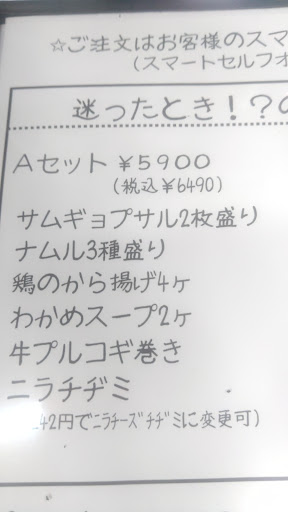 ☆ご注文はお客様のスマ
(スマートセルフオ
迷ったとき！?の
Aセット ￥5900
(税込￥6490)
サムギョプサル2枚盛り
ナムル3種盛り
鶏のから揚げ4ヶ
わかめスープ2ヶ
牛プルコギ巻き
ニラチヂミ
242円でﾆﾗﾁｰｽﾞﾁﾁﾞﾐに変更可)